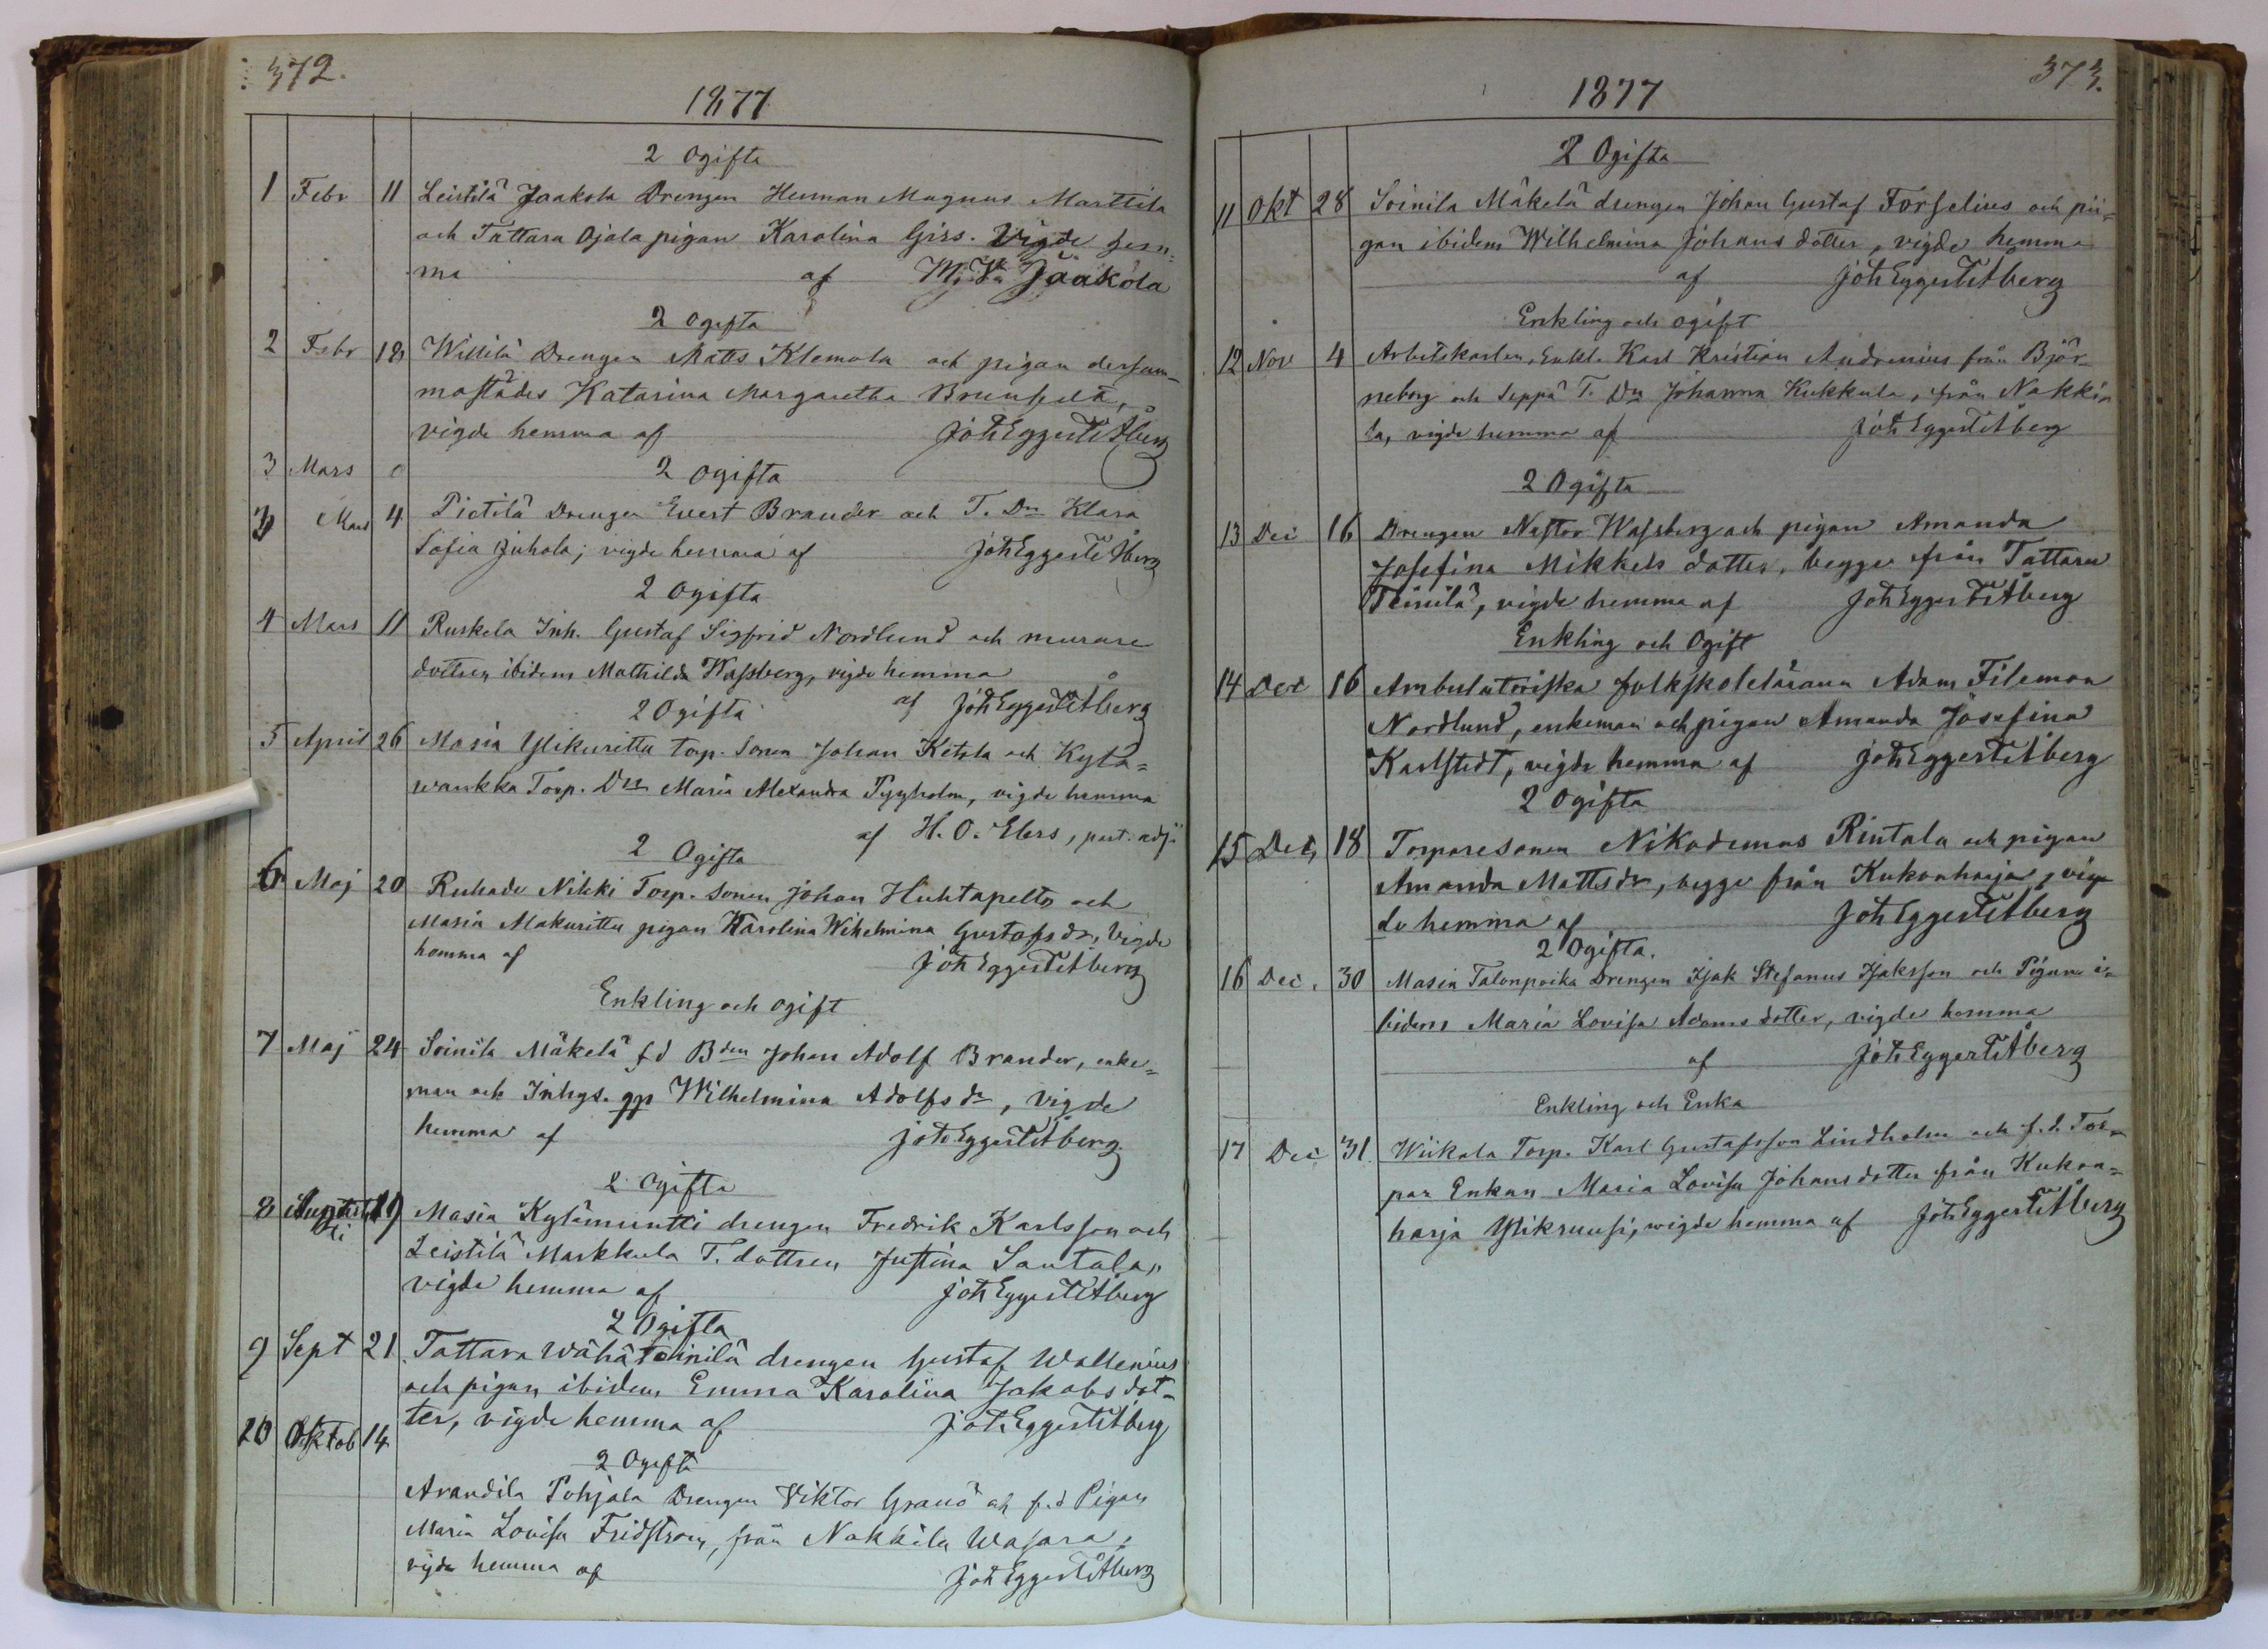 372.
1877
2 Ogifta
1 Febr 11 Leistilä Jaakola Drengen Herman Magnus Marttila
och Tattara Ojala pigan Karolina Giss. Vigde hem-
ma af M. V. Jaakola
2 Ogifta
2 Febr 18 Willilä Drengen Matts Klemola och pigan dersam-
mastädes Katarina Margaretha Brunfelt,
vigde hemma af Joh Eggert Åberg
3 Mars 2 Ogifta
3 Mars 4 Pietilä Drengen Evert Brander och T. Dn Klara
Sofia Juhola; vigde hemma af Joh Eggert Åberg
2 Ogifta
4 Mars 11 Ruskela Inh. Gustaf Sigfrid Nordlund och murare
dottren ibidem Mathilda Wassberg, vigde hemma
af Joh Eggert Åberg
2 Ogifta
5 April 26 Masia Ylikurittu torp. Sonen Johan Ketola och Kylä-
wankka Torp. Dn Maria Alexandra Tyyholm, vigde hemma
af H. O. Elers, past. adj.
2 Ogifta
6 Maj 20 Ruhade Nikki Torp. sonen Johan Huhtapelto och
Masia Makurittu pigan Karolina Wilhelmina Gustafsdr, Vigde
hemma af Joh Eggert Åberg
Enkling och ogift
7 Maj 24 Soinila Mäkelä fd Bden Johan Adolf Brander, enke-
man och Inhys. gp Wilhelmina Adolfsdr, vigde
hemma af Joh Eggert Åberg
2 Ogifta
8 Augusti 19 Masia Kylämuntti drengen Fredrik Karlsson och
Leistilä Markkula T. dottren Justina Santala,
vigde hemma af Joh Eggert Åberg
2 Ogifta
9 Sept 21 Tattara Wähäteinilä drengen Gustaf Wallenius
och pigan ibidem Emma Karolina Jakobs dot-
ter, vigde hemma af Joh Eggert Åberg
10 Oktob 14
2 Ogifta
Arandila Pohjala Drengen Viktor Granö och f.d Pigan
Maria Lovisa Fridström, från Nakkila Wasara,
vigde hemma af Joh Eggert Åberg
373.
1877
2 Ogifta
11 Okt 28 Soinila Mäkelä drengen Johan Gustaf Forselius och pi-
gan ibidem Wilhelmina Johans dotter, vigde hemma
af Joh Eggert Åberg
Enkling och ogift
12 Nov 4 Arbetskarlen, Enkl. Karl Kristian Andronius från Björ-
neborg och Seppä T. Dn Johanna Kukkula, från Nakki-
la, vigde hemma af Joh Eggert Åberg
2 Ogifta
13 Dec 16 Drengen Nestor Wassberg och pigan Amanda
Josefina Mikkels dotter, begge från Tattara
Teinilä, vigde hemma af Joh Eggert Åberg
Enkling och Ogift
14 Dec 16 Ambulatoriska folkskoleläraren Adam Filemon
Nordlund, enkeman och pigan Amanda Josefina
Karlstedt, vigde hemma af Joh Eggert Åberg
2 Ogifta
15 Dec 18 Torparesonen Nikodemus Rintala och pigan
Amanda Mattsdr, begge från Kukonharja, vig-
de hemma af Joh Eggert Åberg
2 Ogifta.
16 Dec. 30 Masia Talonpoika Drengen Isak Stefanus Isaksson och Pigan i-
bidem Maria Lovisa Adams dotter, vigde hemma
af Joh Eggert Åberg
Enkling och Enka
17 Dec 31 Wiikala Torp. Karl Gustafsson Lindholm och f.d. Tor-
par Enkan Maria Lovisa Johansdotter från Kukon-
harja Ylikruusi, wigde hemma af Joh Eggert Åberg